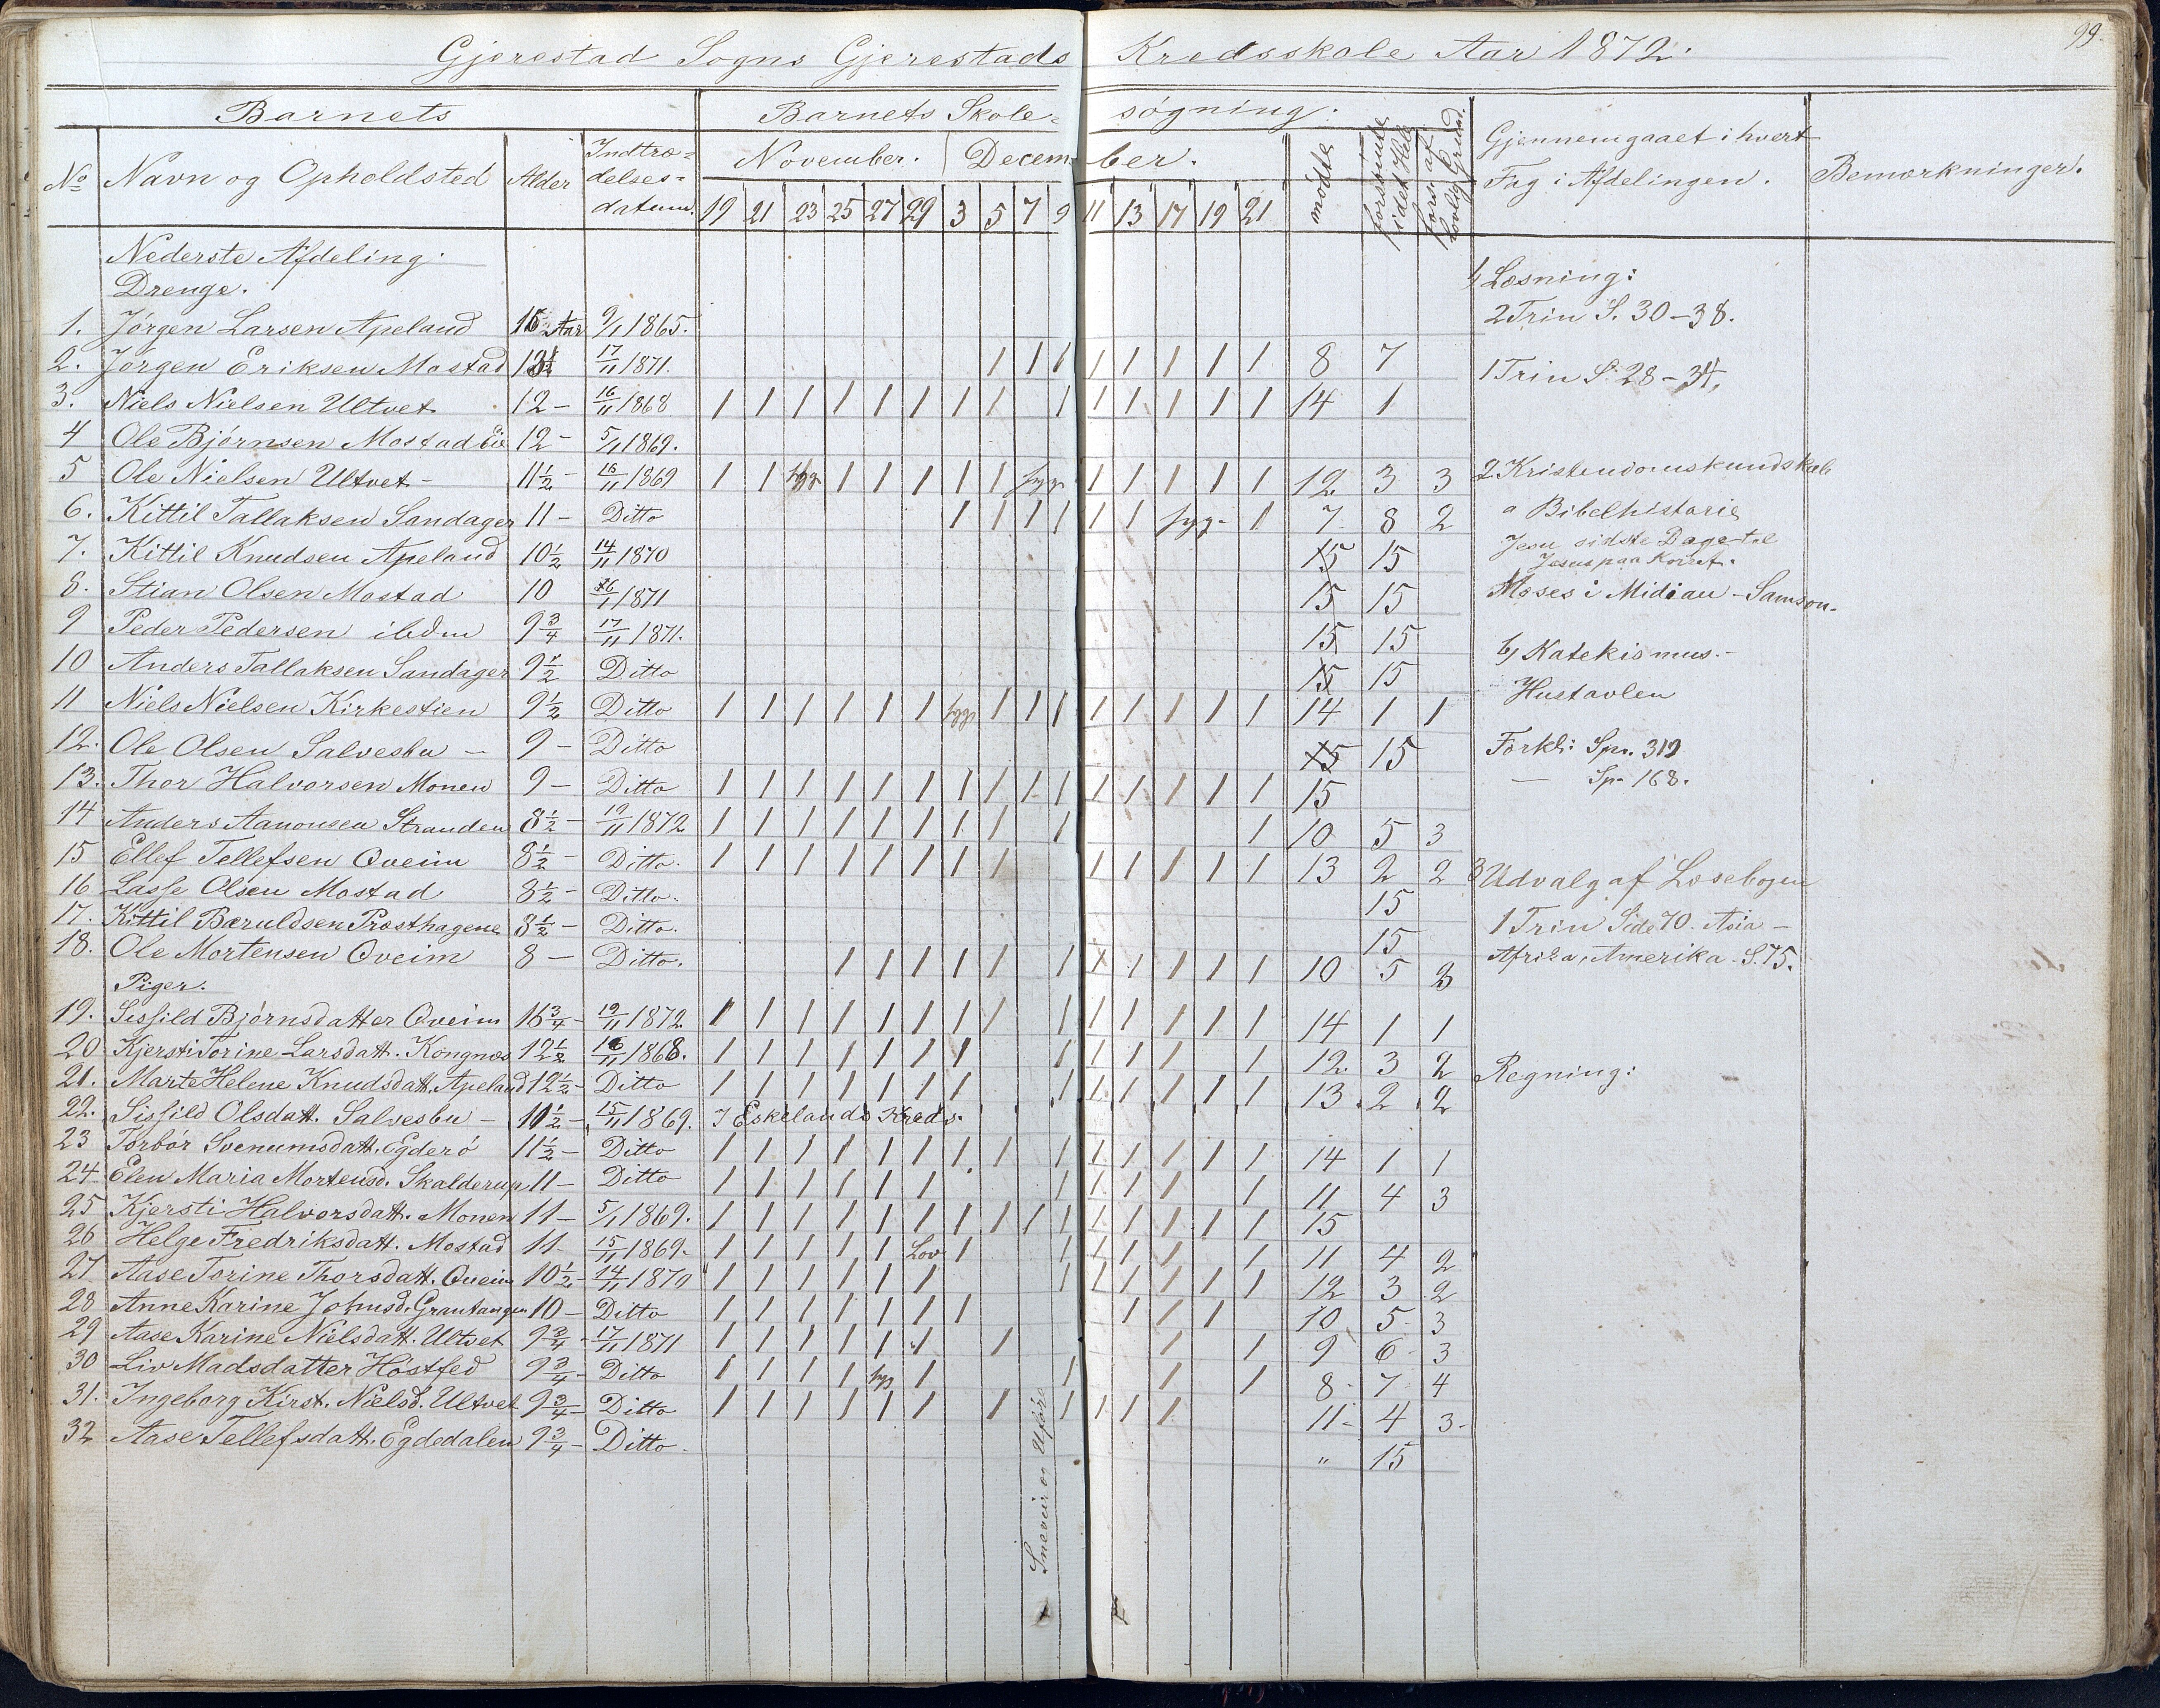 99.
Gjerestad Sogns Gjerestads Kredsskole Aar 1872.
Barnets Barnets Skole= søgning.
No Navn og Opholdsted Alder Indtræ= delses= datum. November. December. mødte forsømte i det Hele fors. af lovlig Grund. Gjennemgaaet i hvert Fag i Afdelingen. Bemærkninger.
19 21 23 25 27 29 3 5 7 9 11 13 17 19 21
Nederste Afdeling.
Drenge.
1. Jørgen Larsen Apeland 15 Aar 9/1 1865.
2. Jørgen Eriksen Mostad 17/11 1871. 1 1 1 1 1 1 1 1 8 7
3. Niels Nielsen Ultvet 12 - 16/11 1868 1 1 1 1 1 1 1 1 1 1 1 1 1 1 14 1
4 Ole Bjørnsen Mostad 12 - 5/11 1869.
5 Ole Nielsen Ultvet - 11 1/2 - 16/11 1869 1 1 syg 1 1 1 1 1 syg 1 1 1 1 1 12 3 3
6. Kittil Tallaksen Sandager 11 - Ditto 1 1 1 1 1 1 syg - 1 7 8 2
7. Kittil Knudsen Apeland 10 1/2 14/11 1870 15 15
8. Stian Olsen Mostad 10 26/1 1871 15 15
9 Peder Pedersen ibdm 9 3/4 17/11 1871. 15 15
10 Anders Tallaksen Sandager 9 1/2 Ditto 15 15
11 Niels Nielsen Kirkestien 9 1/2 Ditto 1 1 1 1 1 1 syg 1 1 1 1 1 1 1 1 14 1 1
12. Ole Olsen Salvesbu - 9 - Ditto 15 15
13. Thor Halvorsen Monen 9 - Ditto 1 1 1 1 1 1 1 1 1 1 1 1 1 1 1 15
14 Anders Aanonsen Stranden 8 1/2 - 19/11 1872 1 1 1 1 1 1 1 1 1 1 10 5 3
15 Ellef Tellefsen Oveim 8 1/2 - Ditto. 1 1 1 1 1 1 1 1 1 1 1 1 1 13 2 2
16 Lasse Olsen Mostad 8 1/2 - Ditto. 15
17. Kittil Bæruldsen Præsthagene 8 1/2 - Ditto. 15
18. Ole Mortensen Oveim 8 - Ditto. 1 1 1 1 1 1 1 1 1 1 1 10 5 3
Piger.
19. Sissild Bjørnsdatter Oveim 16 3/4 - 19/11 1872. 1 1 1 1 1 1 1 1 1 1 1 1 1 1 14 1 1
20 Kjersti Torine Larsdatt. Kongnæs 12 1/2 16/11 1868. 1 1 1 1 1 1 1 1 1 1 1 1 12. 3 2
21. Marte Helene Knudsdatt. Apeland 12 1/2 - Ditto 1 1 1 1 1 1 1 1 1 1 1 1 1 13 2 2
22. Sissild Olsdatt. Salvesbu - 11 1/2 - 15/11 1869. I Eskelands Kreds.
23 Torbør Svenumsdatt. Egderø 11 1/2 - Ditto 1 1 1 1 1 1 1 1 1 1 1 1 1 1 14 1 1
24 Elen Maria Mortensd. Skalderup 11 - Ditto 1 1 1 1 1 1 1 1 1 1 1 11 4 3
25 Kjersti Halvorsdatt. Monen 11 - 5/1 1869. 1 1 1 1 1 1 1 1 1 1 1 1 1 1 1 15
26 Helge Fredriksdatt. Mostad 11 - 15/11 1869. 1 1 1 1 1 Lov 1 1 1 1 1 1 11 4 2
27 Aase Torine Thorsdatt. Oveim 10 1/2 - 14/11 1870 1 1 1 1 1 1 1 1 1 1 1 1 12 3 2
28 Anne Karine Johnsd. Grautangen 10 - Ditto 1 1 1 1 1 1 1 1 1 1 10 5 3
29 Aase Karine Nielsdatt. Ultvet 9 3/4 - 17/11 1871 1 1 1 1 1 1 1 1 1 9 6 3
30 Liv Madsdatter Høstfed 9 3/4 - Ditto 1 1 1 1 syg 1 1 1 1 8 7 4
31. Ingeborg Kirst. Nielsd. Ultvet 9 3/4 - Ditto 1 1 1 1 1 1 1 1 1 1 1 11 - 4 3 -
32 Aase Tellefsdatt. Egdedalen 9 3/4 - Ditto " 15
Sneveir og Uføre
1 Læsning:
2 Trin S. 30-38.
1 Trin S. 28-34.
2 Kristendomskundskab
a Bibelhistorie
Jesu sidste Dage til
Jesus paa Korset.
Moses i Midian - Samson -
b) Katekismus. -
Hustavlen
Forkl: Spr. 319
— Sp. 168.
3 Udvalg af Læsebogen
1 Trin Side 70. Asia -
Afrika, Amerika. S. 75.
Regning: